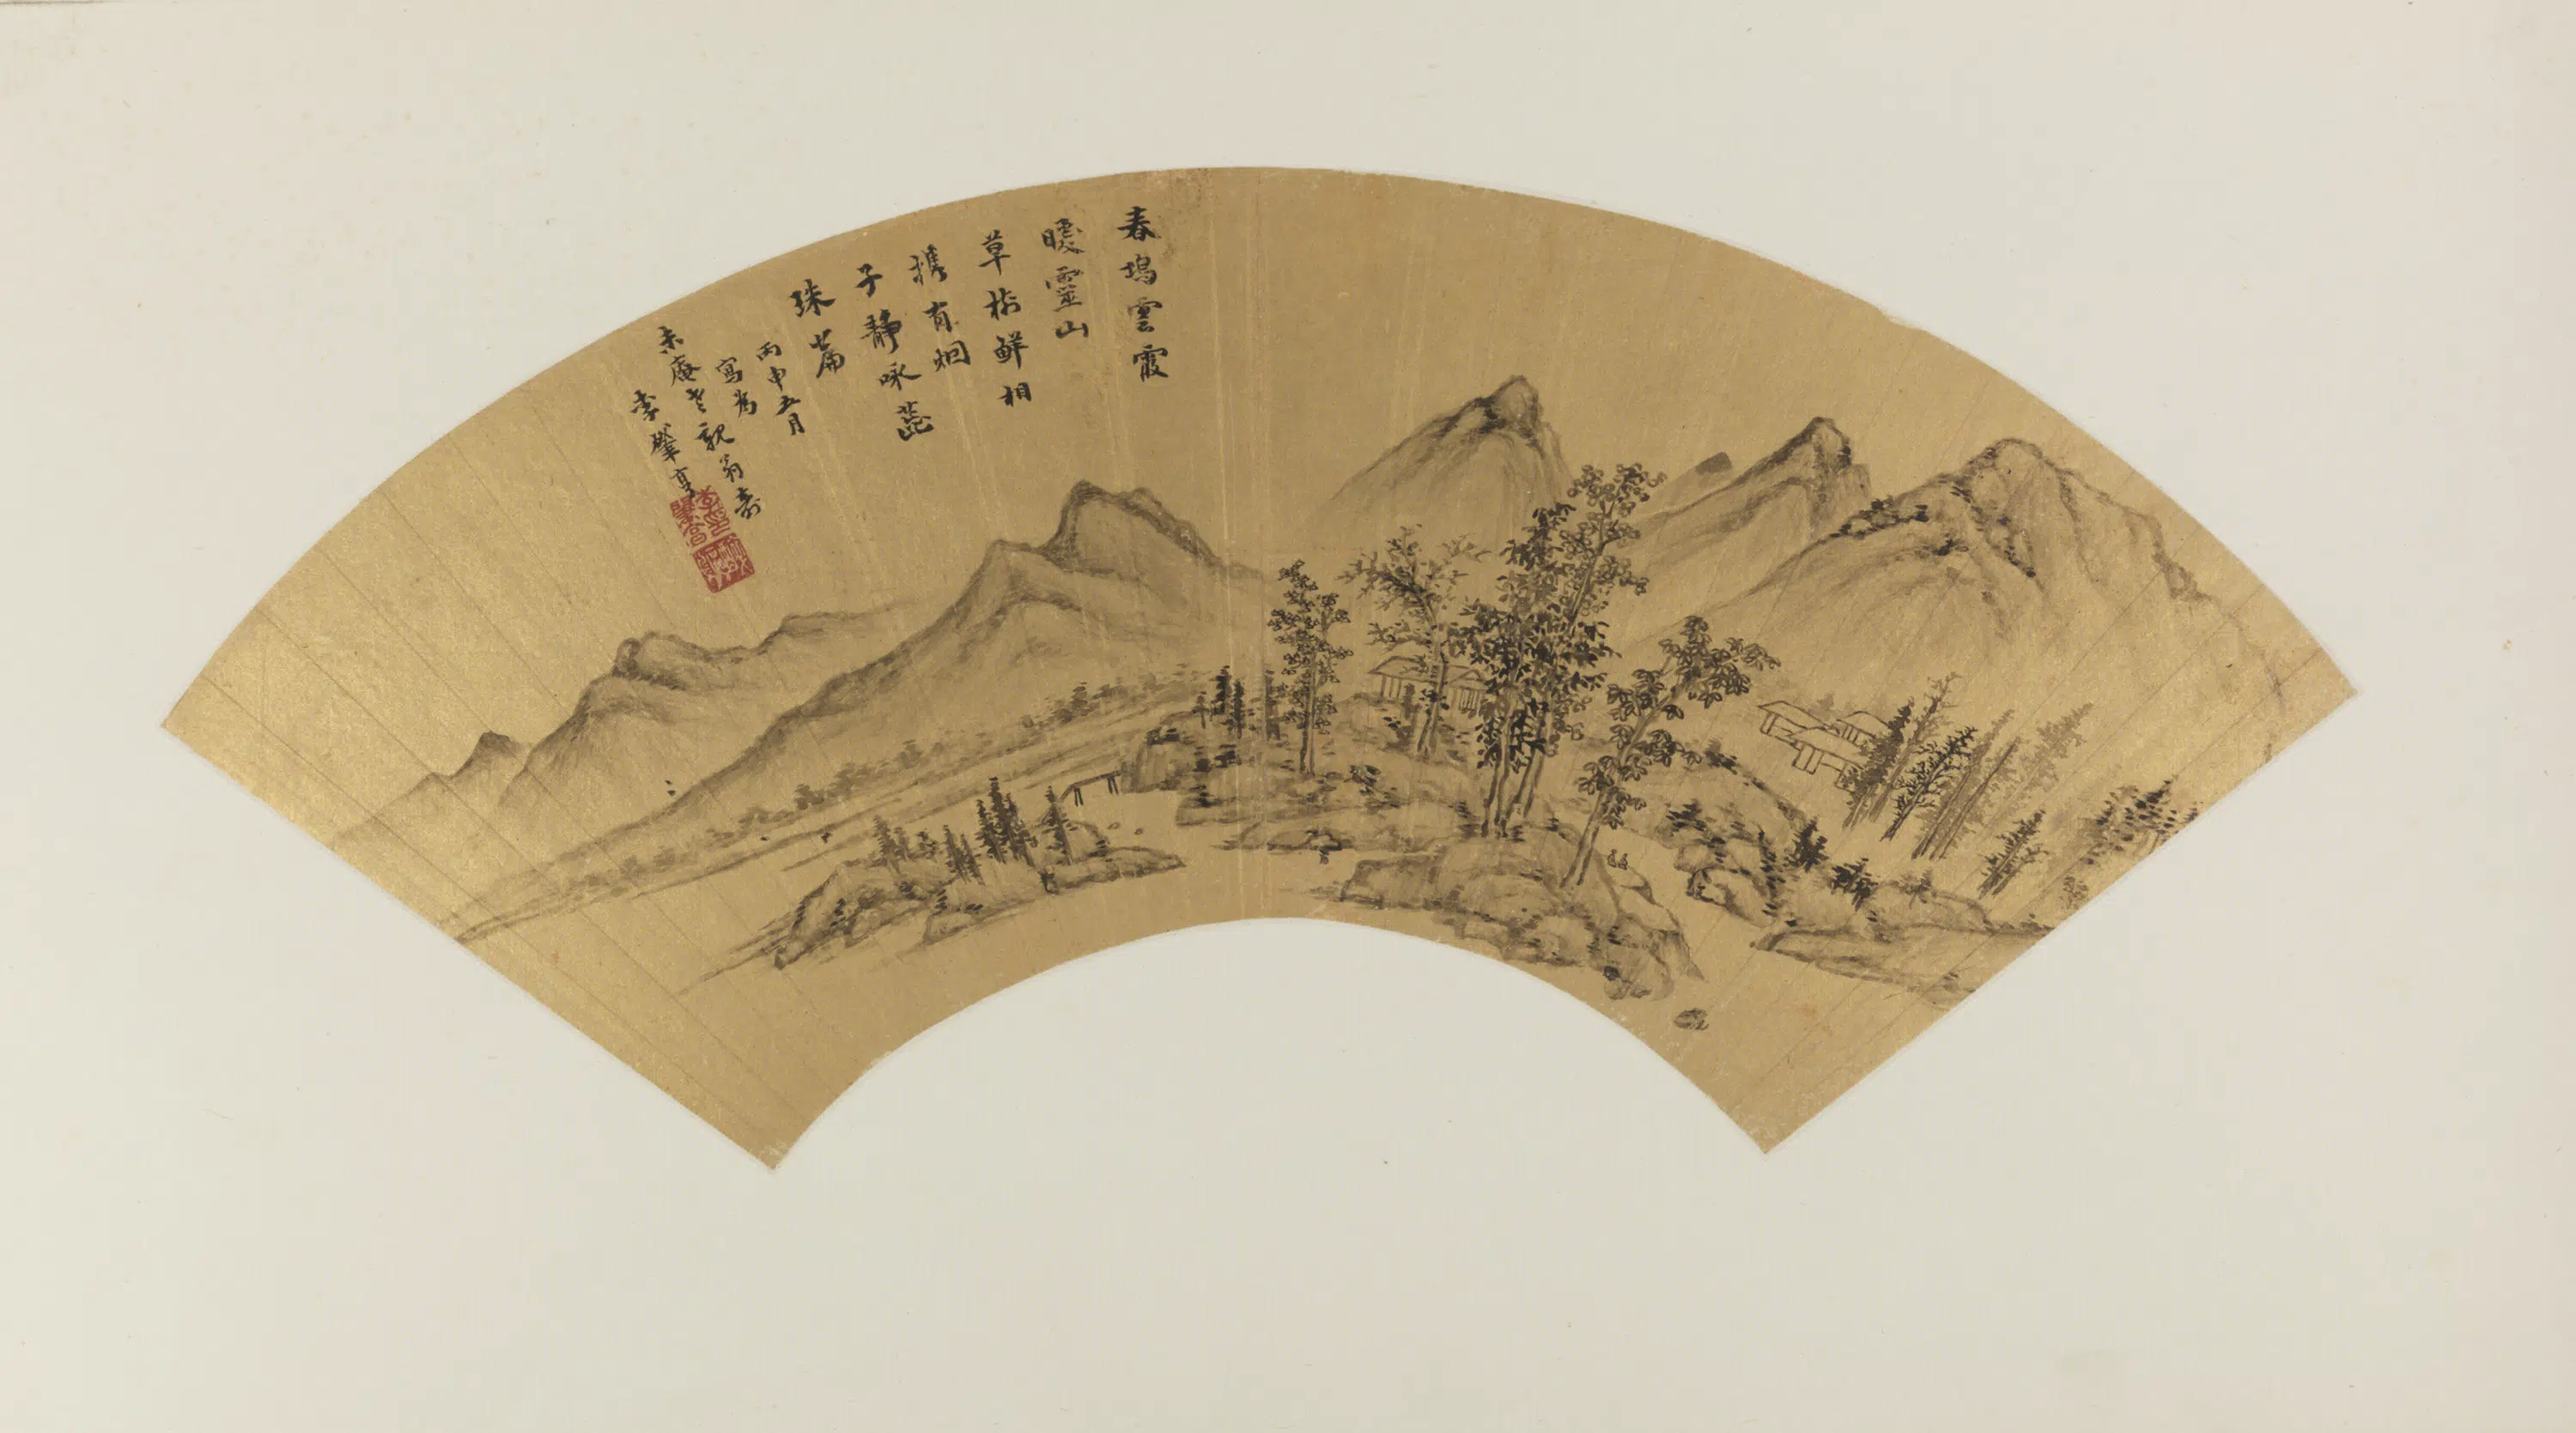 春塢雲霞
暖靈山
草樹鮮相
携有烟
子靜咏蕊
珠篇
丙申五月
寫為
未庵老親翁壽
李肇亨